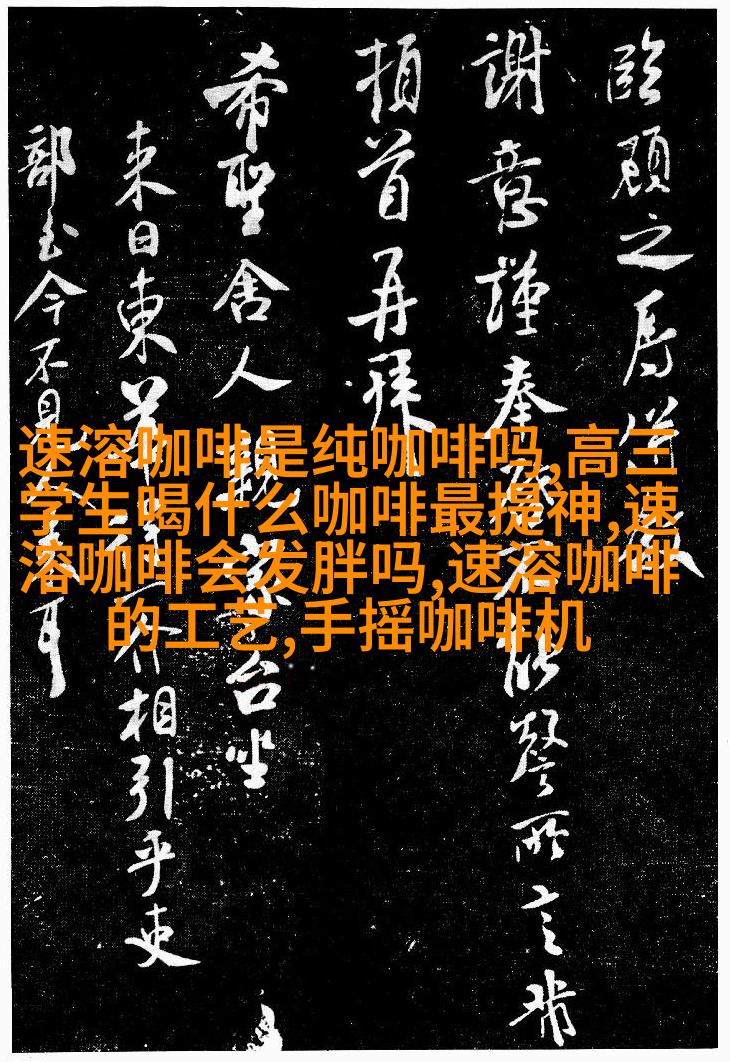 臨顧之辱
謝意謹奉啓不能罄所言
頓首再拜
希聖舍人親家台坐
來日東相引乎吏
部至今不見耳
速溶咖啡是纯咖啡吗,高三
学生喝什么咖啡最提神,速
溶咖啡会发胖吗,速溶咖啡
的工艺,手摇咖啡机